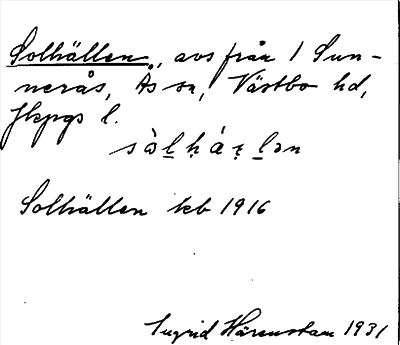 Solhällen, avs från 1 Sun-
nerås, Ås sn, Västbo hd,
Jkpgs l.
Solhällen kb 1916
Ingrid Härenstam 1931